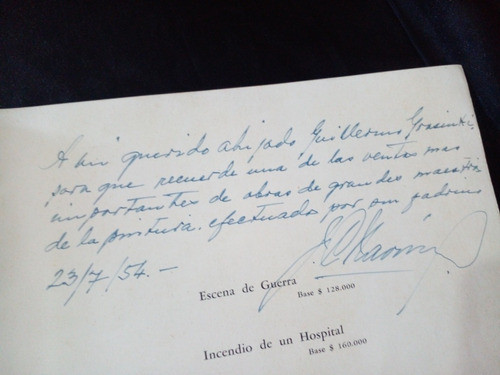 A mi querido ahijado Guillermo
para que recuerde una de las ventas mas
importantes de obras de grandes maestros
de la pintura, efectuadas por su padrino
23/7/54.-
Escena de Guerra
Base $ 128.000
Incendio de un Hospital
Base $ 160.000